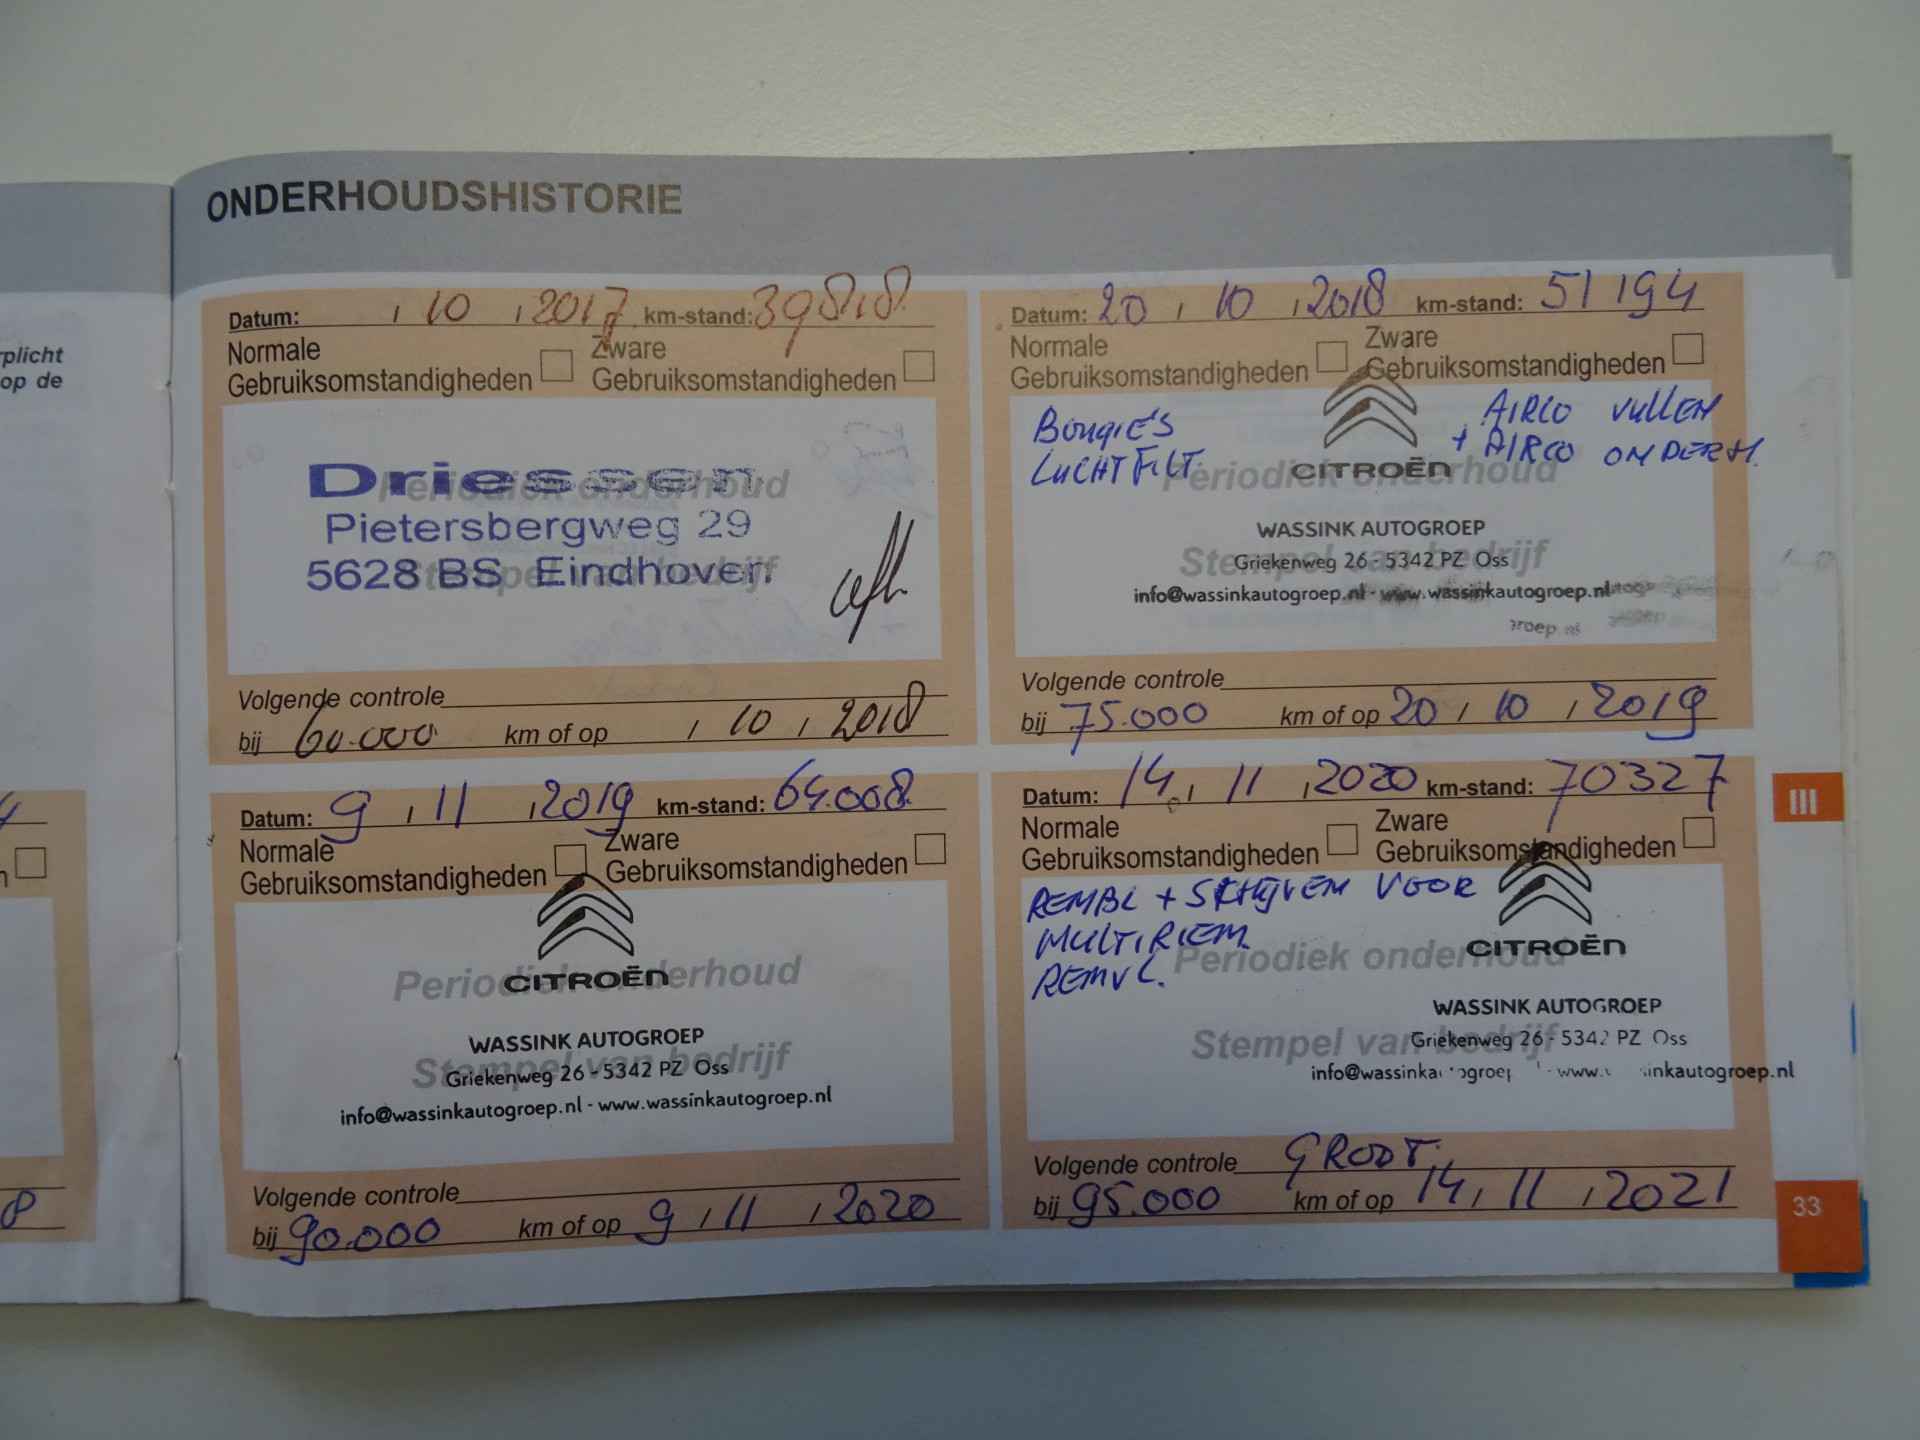 ONDERHOUDSHISTORIE
rplicht
op de
Datum: , 10 , 2017 km-stand: 39818
Normale
Gebruiksomstandigheden
Zware
Gebruiksomstandigheden
Periodiek onderhoud
Driessen
Pietersbergweg 29
Stempel van bedrijf
5628 BS Eindhoven
Volgende controle
bij 60.000 km of op , 10 , 2018
Datum: 20 , 10 , 2018 km-stand: 51194
Normale
Gebruiksomstandigheden
Zware
Gebruiksomstandigheden
BOUGIE'S
LUCHTFILT.
AIRCO VULLEN
+ AIRCO ONDERH.
Periodiek onderhoud
CITROËN
WASSINK AUTOGROEP
Stempel van bedrijf
Griekenweg 26 - 5342 PZ Oss
info@wassinkautogroep.nl - www.wassinkautogroep.nl
groep.nl
Volgende controle
bij 75.000 km of op 20 , 10 , 2019
Datum: 9 , 11 , 2019 km-stand: 64.008
Normale
Gebruiksomstandigheden
Zware
Gebruiksomstandigheden
Periodiek onderhoud
CITROËN
WASSINK AUTOGROEP
Stempel van bedrijf
Griekenweg 26 - 5342 PZ Oss
info@wassinkautogroep.nl - www.wassinkautogroep.nl
Volgende controle
bij 90.000 km of op 9 , 11 , 2020
Datum: 14 , 11 , 2020 km-stand: 70327
Normale
Gebruiksomstandigheden
Zware
Gebruiksomstandigheden
REMBL + SCHIJVEN VOOR
MULTIRIEM
REMVL.
Periodiek onderhoud
CITROËN
WASSINK AUTOGROEP
Stempel van bedrijf
Griekenweg 26 - 5342 PZ Oss
Volgende controle GROOT.
bij 95.000 km of op 14 , 11 , 2021
III
33